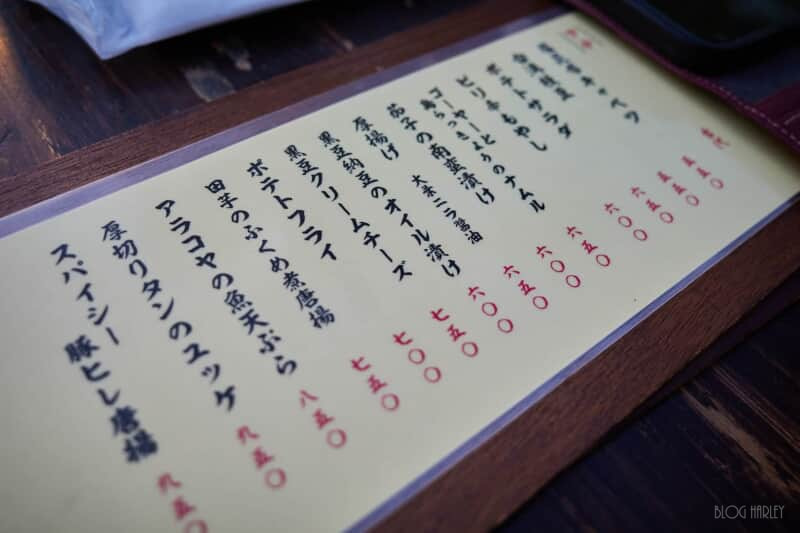 塩昆布キャベツ
ポテトサラダ
六五〇
ピリ辛もやし
六〇〇
ゴーヤーのナムル
六五〇
島らっきょう
六〇〇
茄子の南蛮漬け
六五〇
厚揚げ 大葉ニラ醤油
六〇〇
黒豆納豆のオイル漬け
七五〇
黒豆クリームチーズ
七〇〇
ポテトフライ
七五〇
田芋のふくめ煮唐揚
八五〇
アラコヤの魚天ぷら
九五〇
厚切りタンのユッケ
九五〇
スパイシー 豚ヒレ唐揚
BLOG HARLEY